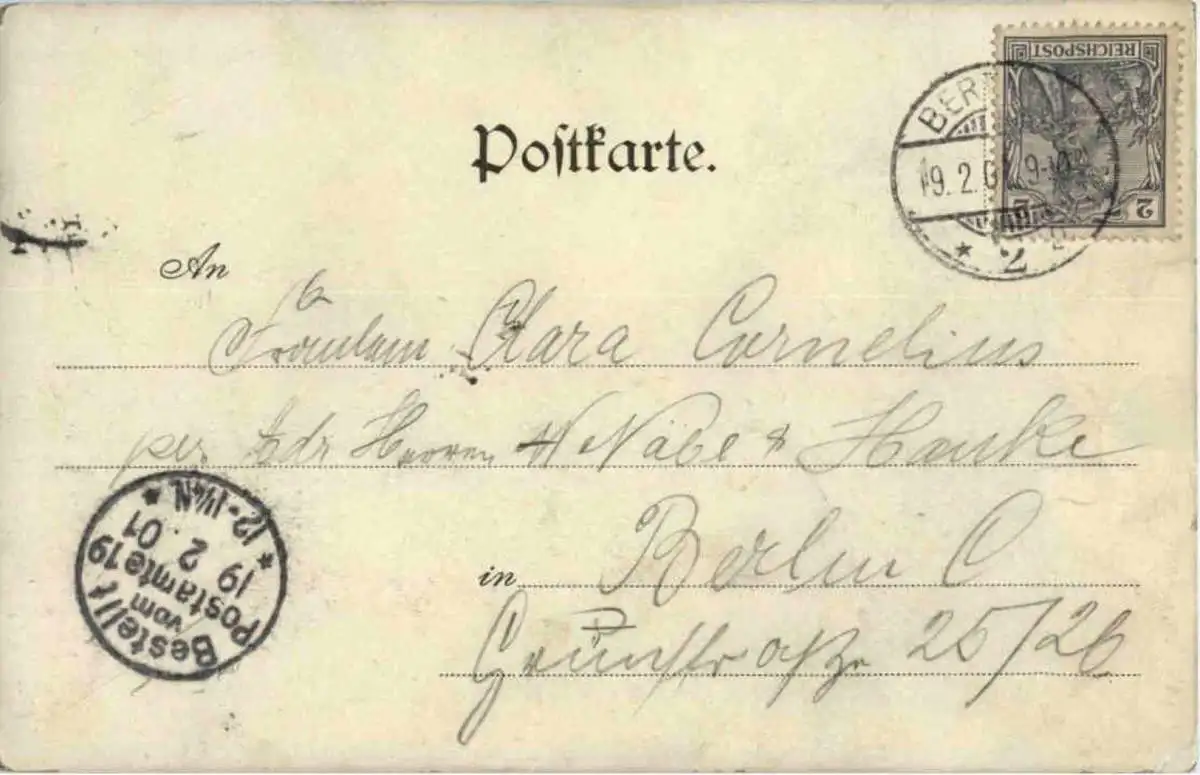 Postkarte.
REICHSPOST
2 2
BER
19.2.01 9-10V
* 2
An
Fräulein Clara Cornelius
per Adr Herren Näbe & Hanke
in Berlin C
Grünstraße 25/26
Bestellt
vom
Postamte 19
19 2 . 01
* 12-1¼N. *